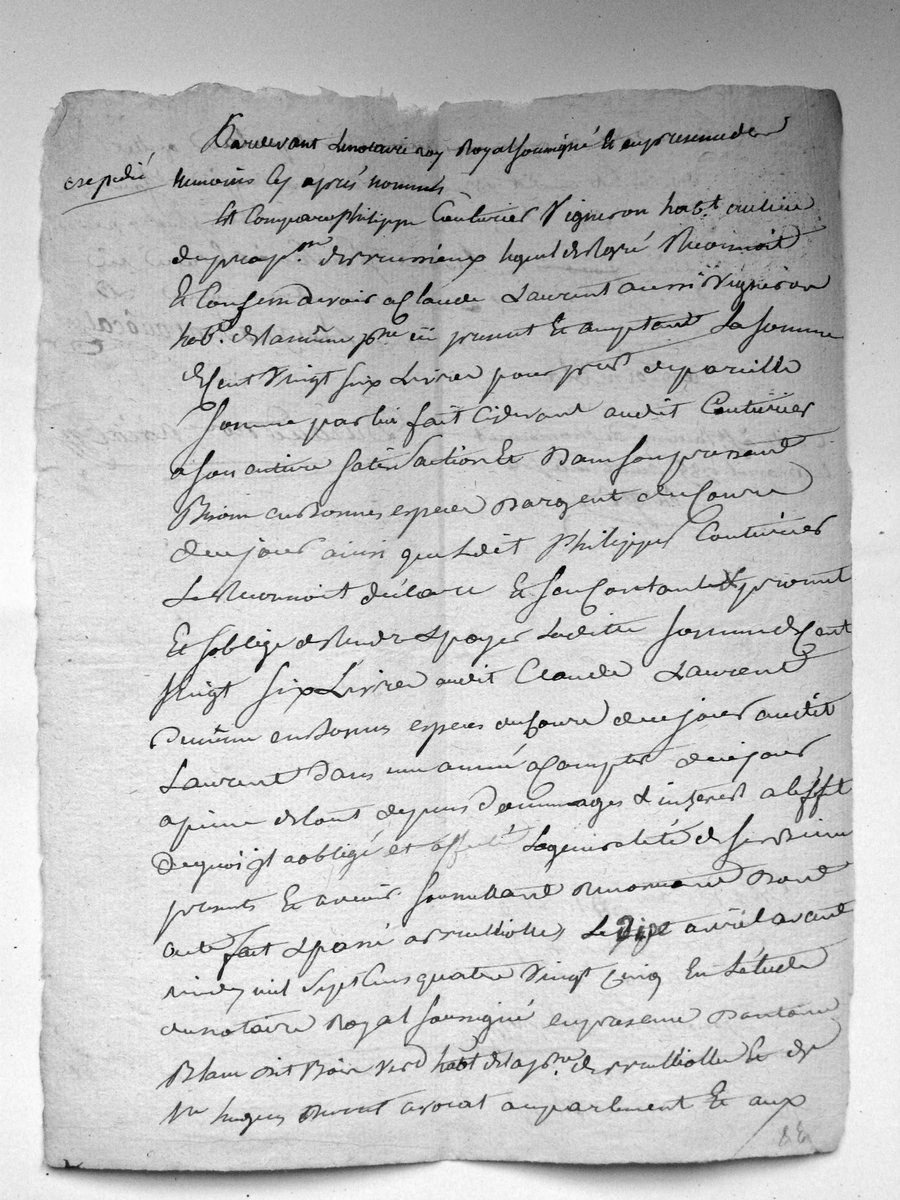 Pardevant Lenotaire roy Royal soussigné Et en presence des
expedié
temoins Cy après nommés
Est Comparu Philippe Couturier Vigneron hab.t au lieu
Reconnoit
Et Confesse devoir a Claude Laurent aussi Vigneron
hab.t de la même present Et acceptant La somme
de Cent Vingt Six Livres pour prest de pareille
Somme par lui fait Cidevant audit Couturier
a son entiere satisfaction Et
en bonnes especes d'argent du Cours
de ce jour ainsi que Ledit Philippe Couturier
Le Reconnoit déclare Et promet
Et soblige de Rendre & payer Laditte somme de Cent
Vingt Six Livres audit Claude Laurent
de même en bonnes especes du Cours de ce jour audit
Laurent Dans une année a Compter de ce jour
a peine de tout depens dommages & interest a leffet
de quoi il a obligé et affecté La generalité de ses Biens
presents Et avenir soumettant Renonceant Dont
acte fait & passé a Le dix avril avant
midy mil Sept Cens quatre Vingt Cinq En Létude
du notaire Royal soussigné en presence
Blanc dit hab.t de la et de
hugues avocat au parlement Et aux